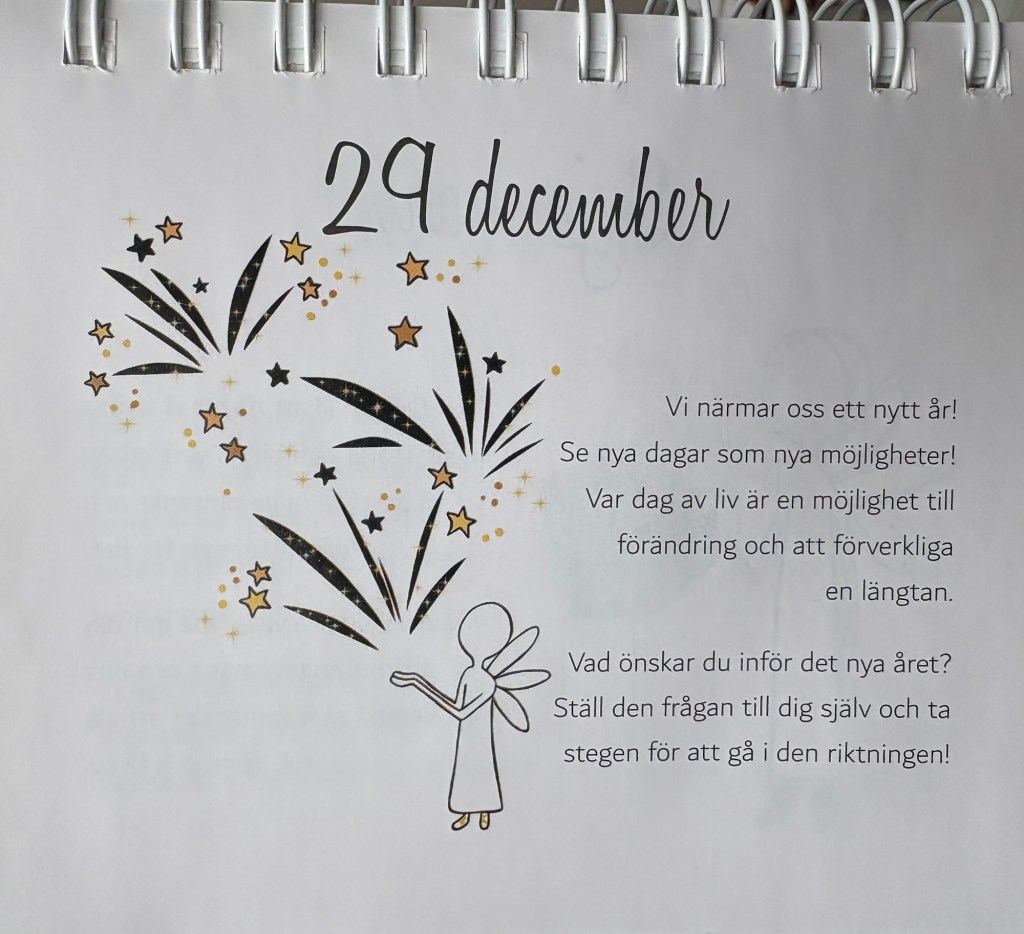 29 december
Vi närmar oss ett nytt år!
Se nya dagar som nya möjligheter!
Var dag av liv är en möjlighet till
förändring och att förverkliga
en längtan.
Vad önskar du inför det nya året?
Ställ den frågan till dig själv och ta
stegen för att gå i den riktningen!